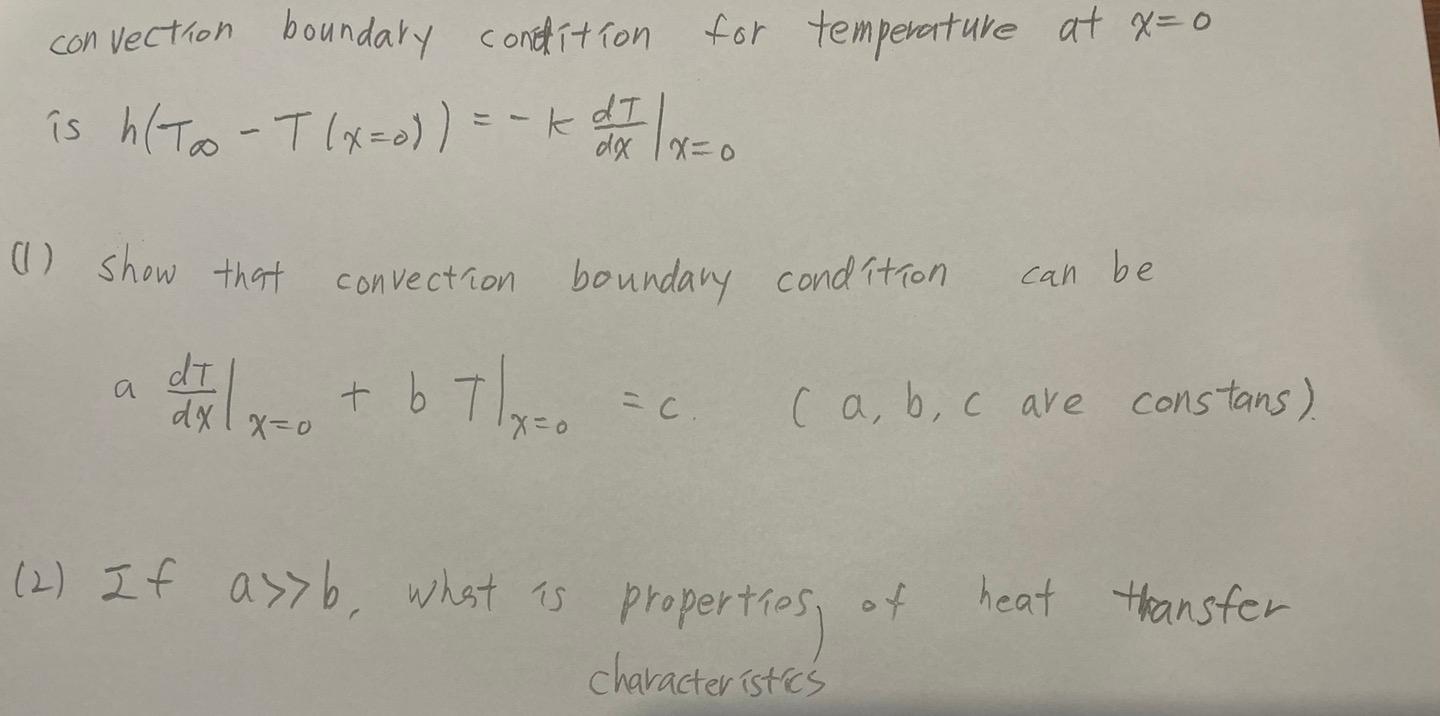 convection boundary condition for temperature at x=0
is h(T∞ - T(x=0)) = -k dT/dx|x=0
(1) show that convection boundary condition can be
a dT/dx|x=0 + b T|x=0 = c. (a, b, c are constans).
(2) If a>>b, what is properties, of heat transfer
characteristics